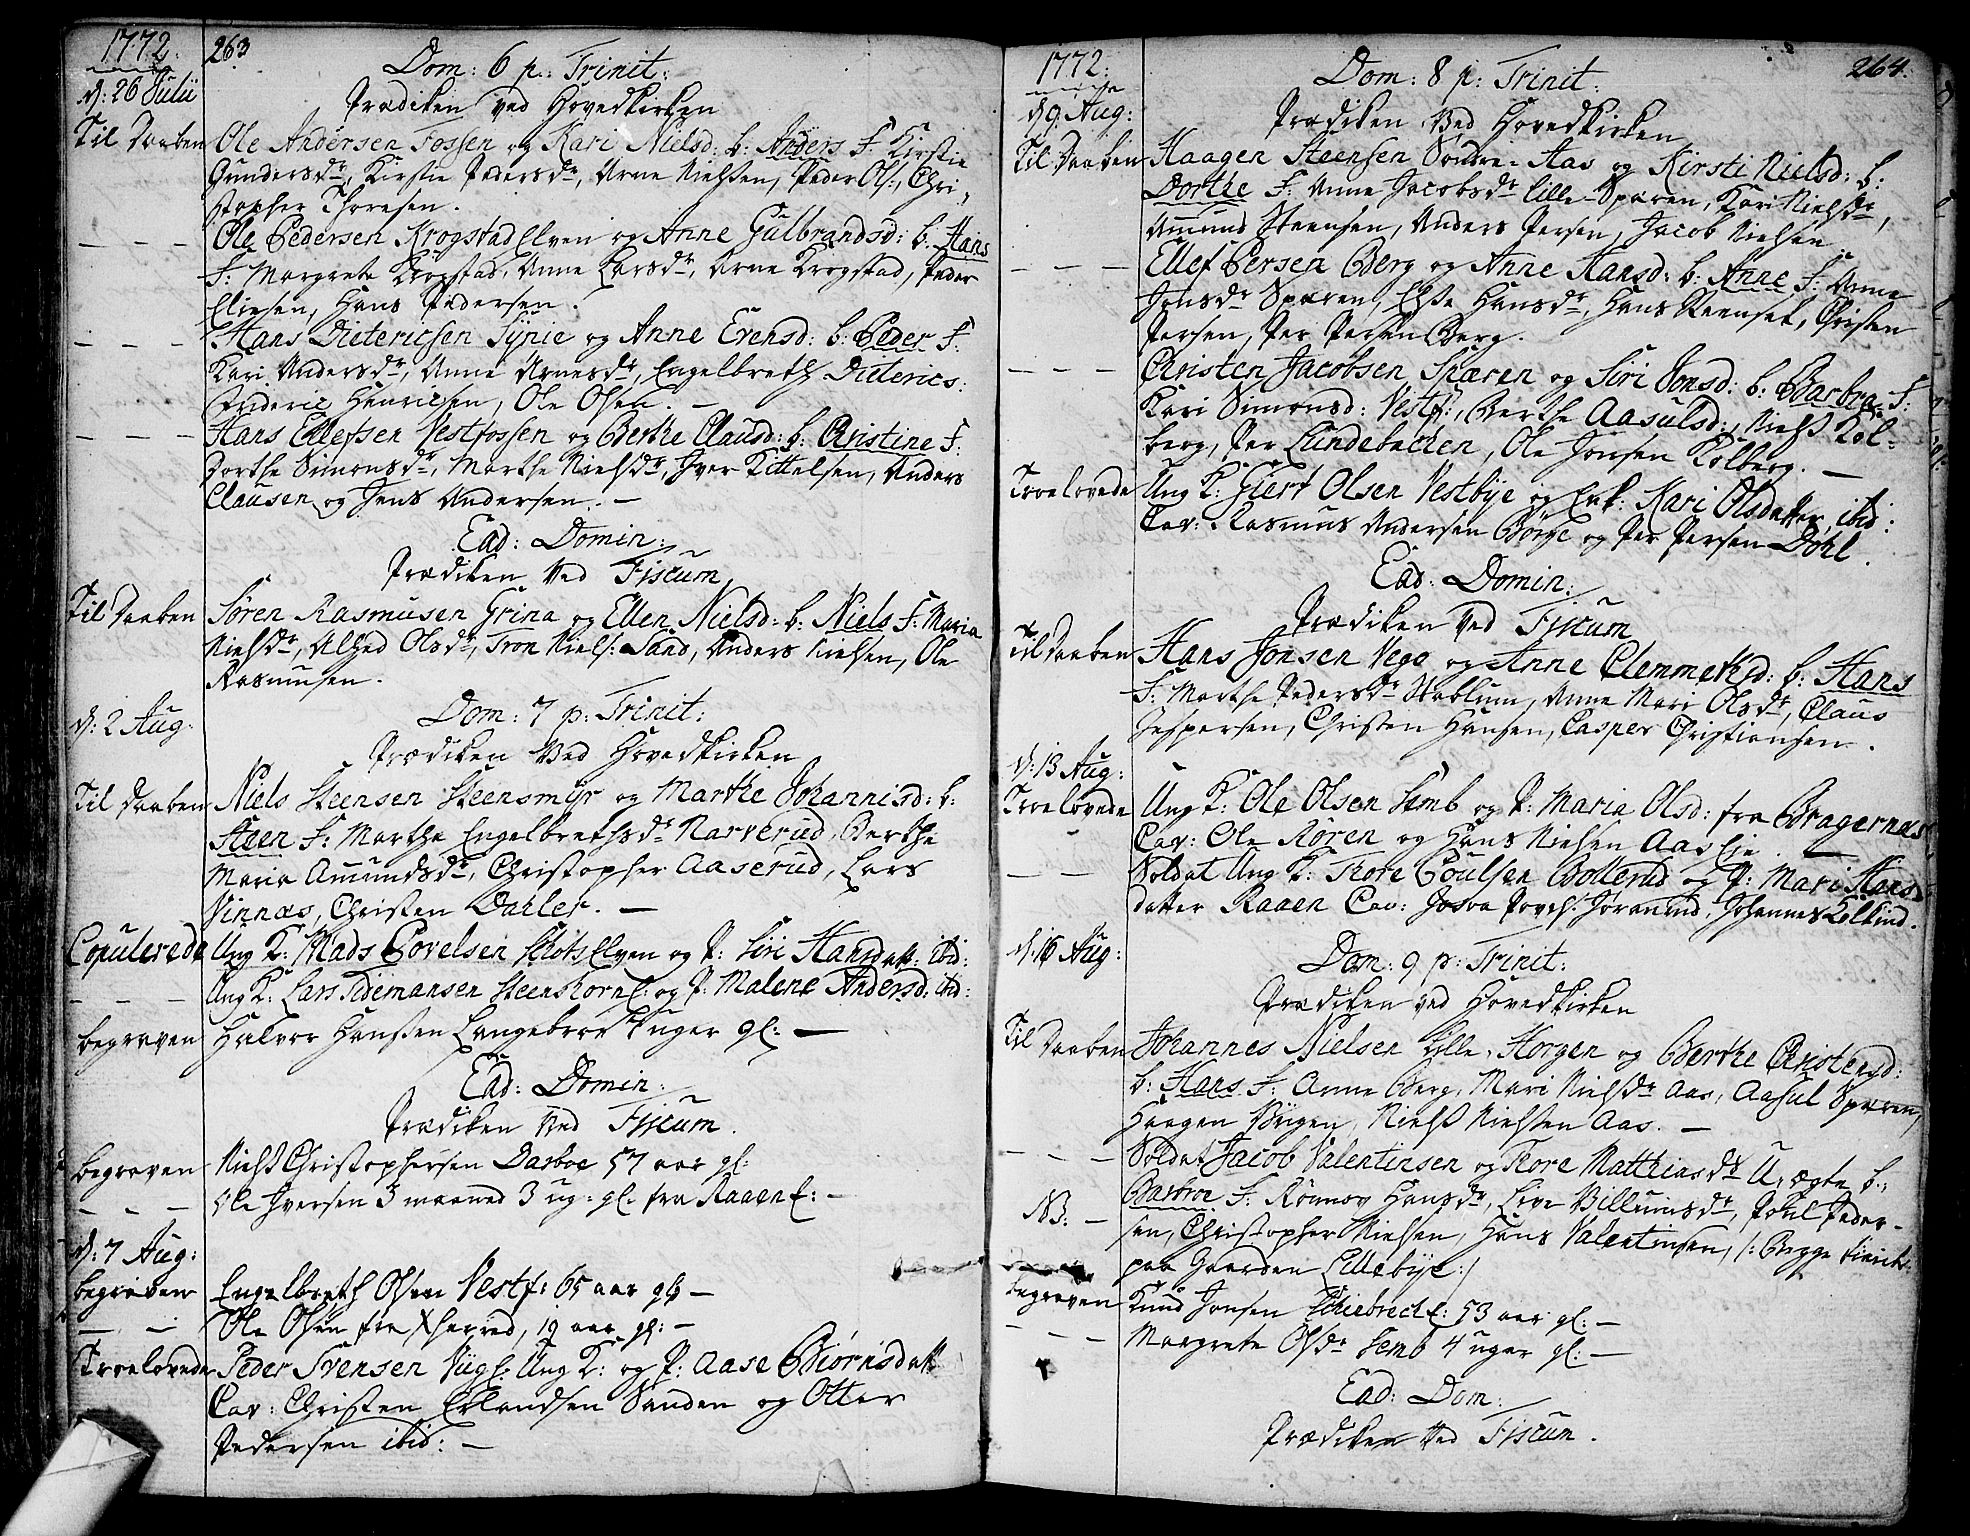 1772.
263
Dom: 6 p: Trinit:
d: 26 Julii
Prædiken ved Hovedkirken
Til Daaben
Ole Andersen Fossen og Kari Nielsd: b: Anders F. Kirstie
Gundersdr, Kirstie Pedersdr, Arne Nielsen, Peder Ols:, Chri-
stopher Thoresen.
- - -
Ole Pedersen KrogstadElven og Anne Gulbrandsd: b: Hans
F: Margrete Krogstad, Anne Larsdr, Arne Krogstad, Peder
Eliesen, Hans Pedersen.
- - -
Hans Dietericsen og Anne Erensd: b: Peder F.
Kari Andersdr, Anne Arnesdr, Engelbreth Dieterics:
Frideric Henricsen, Ole Olsen. -
- - -
Hans Ellefsen Vestfossen og Berthe Clausd: b: Christine F.
Dorthe Simonsdr, Marthe Nielsdr, Iver Kittelsen, Anders
Clausen og Jens Andersen. -
Ead: Domin:
Prædiken Ved Fiscum
Til Daaben
Søren Rasmusen Grina og Ellen Nielsd: b: Niels F: Maria
Nielsdr, Alhed Olsdr, Tron Niels: Sand, Anders Nielsen, Ole
Rasmusen.
Dom: 7 p: Trinit:
d: 2 Aug:
Prædiken Ved Hovedkirken
Til Daaben
Niels Steensen Steensmyr og Marthe Johannisd: b:
Steen F: Marthe Engelbrethsdr Narverud, Berthe
Maria Amundsdr, Christopher Aaserud, Lars
Vinnæs, Christen Dahler. -
Copulerede
Ung K: Mads Povelsen SkotsElven og P: Siri Hansdatt: ibid:
- - -
Ung K: Lars Tidemansen og P: Malene Andersd: ibid:
begraven
Halvor Hansen Langebroe uger gl: -
Ead: Domin:
Prædiken Ved Fiscum.
begraven
Niels Christophersen Dasboe 57 aar gl:
- - -
Ole Iversen 3 maaned 3 ug: gl. fra Raaen E: -
d: 7 Aug:
begraven
Engelbreth Olsen Vestf: 65 aar gl: -
- - -
Ole Olsen fra 19 aar gl: -
Troelovede
Peder Svensen Ung K: og P: Aase Biørnsdatt
Cav: Christen Erlandsen Sanden og Otter
Pedersen ibid: -
1772.
264.
Dom: 8 p: Trinit:
d 9. Aug:
Prædiken Ved Hovedkirken
Til Daaben
Haagen Steensen Søndre-Aas og Kirsti Nielsd: b:
Dorthe F. Anne Jacobsdr lille-Spæren, Kari Nielsdr,
Amund Steensen, Anders Persen, Jacob Nielsen.
- - -
Ellef Persen Berg og Anne Hansd: b: Anne F: Anne
Jonsdr Spæren, Else Hansdr, Hans Christen
Persen, Per Persen Berg.
- - -
Christen Jacobsen Spæren og Siri Jonsd: b: Barbra F:
Kari Simonsd: Vestf:, Berthe Aasulsd:, Niels Kol-
berg, Per Lundebachen, Ole Jonsen Kolberg. -
Troelovede
Ung K: Giert Olsen Vestbye og Enk: Kari Olsdatter, ibid:
Cav: Rasmus Andersen Børge og Per Persen Dohl.
Ead: Domin:
Prædiken Ved Fiscum
Til Daaben
Hans Jonsen Vego og Anne Clemmetsd: b: Hans
F: Marthe Pedersdr Stablum, Anne Mari Olsdr, Claus
Jespersen, Christen Hansen, Casper Christiansen.
d: 13 Aug:
Troelovede
Ung K: Ole Olsen Semb og P: Maria Olsd: fra Bragernæs
Cav: Ole Røren og Hans Nielsen Aas Eie. -
- - -
Soldat Ung K: Tore Poulsen Bollerud og P: Mari Hans
datter Raaen Cav: Josva Johannes Kolkind.
d: 16 Aug:
Dom: 9 p: Trinit:
Prædiken ved Hovedkirken
Til Daaben
Johannes Nielsen Lille-Horgen og Berthe Christensd:
b: Hans F: Anne Berg, Mari Nielsdr Aas, Aasul Spæren,
Haagen Niels Nielsen Aas. -
- - -
Soldat Jacob Valentinsen og Tore Matthiasdr U-ægte b:
NB: -
Barbroe F. Rønnov Hansdr, Live Villumsdr, Poul Peder-
sen, Christopher Nielsen, Hans Valentinsen, /: Begge
paa Gaarden Lillebye :/
begraven
Knud Jonsen 53 aar gl: -
- - -
Margrete Olsdr Semb 4 uger gl: -
Ead: Dom:
Prædiken Ved Fiscum.